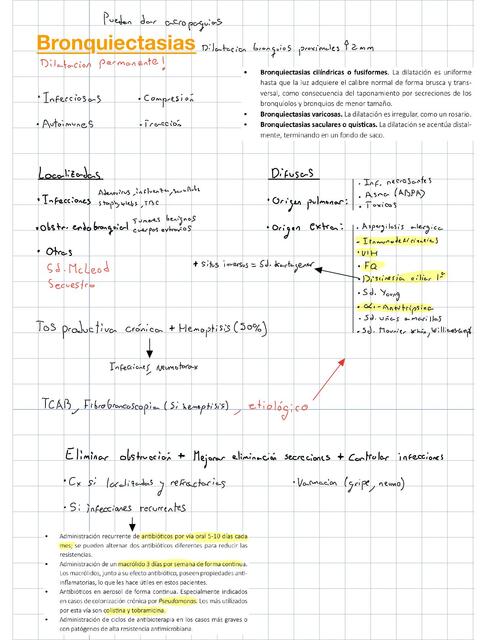 Pueden dar acropaquias
Bronquiectasias Dilatacion bronquios proximales ↑2mm
Dilatacion permanente!
• Bronquiectasias cilíndricas o fusiformes. La dilatación es uniforme
hasta que la luz adquiere el calibre normal de forma brusca y trans-
versal, como consecuencia del taponamiento por secreciones de los
bronquiolos y bronquios de menor tamaño.
• Bronquiectasias varicosas. La dilatación es irregular, como un rosario.
• Bronquiectasias saculares o quísticas. La dilatación se acentúa distal-
mente, terminando en un fondo de saco.
• Infecciosas • Compresión
• Autoinmunes • Tracción
Localizadas
• Infecciones Adenovirus, influenza,
TBC
• Obstr. endobronquial Tumores benignos
cuerpos extraños
• Otras
Sd. McLeod
Secuestro
Difusas
• Origen pulmonar:
• Inf. necrosantes
• Asma (ABPA)
• Toxicos
• Origen extra:
• Aspergilosis alergica
• Inmunodeficiencias
• VIH
• FQ
• Discinesia ciliar 1ª
• Sd. Young
• α1-Antitripsina
• Sd. uñas amarillas
• Sd. Mounier Kuhn, Williams
+ Situs inversus = Sd. Kartagener
Tos productiva crónica + Hemoptisis (50%)
Infecciones, Neumotorax
TCAR, Fibrobroncoscopia (Si hemoptisis), etiológico
Eliminar obstrucción + Mejorar eliminación secreciones + Controlar infecciones
• Cx si localizadas y refractarias • Vacunacion (gripe, neumo)
• Si infecciones recurrentes
• Administración recurrente de antibióticos por vía oral 5-10 días cada
mes; se pueden alternar dos antibióticos diferentes para reducir las
resistencias.
• Administración de un macrólido 3 días por semana de forma continua.
Los macrólidos, junto a su efecto antibiótico, poseen propiedades anti-
inflamatorias, lo que les hace útiles en estos pacientes.
• Antibióticos en aerosol de forma continua. Especialmente indicados
en casos de colonización crónica por Pseudomonas. Los más utilizados
por esta vía son colistina y tobramicina.
• Administración de ciclos de antibioterapia en los casos más graves o
con patógenos de alta resistencia antimicrobiana.